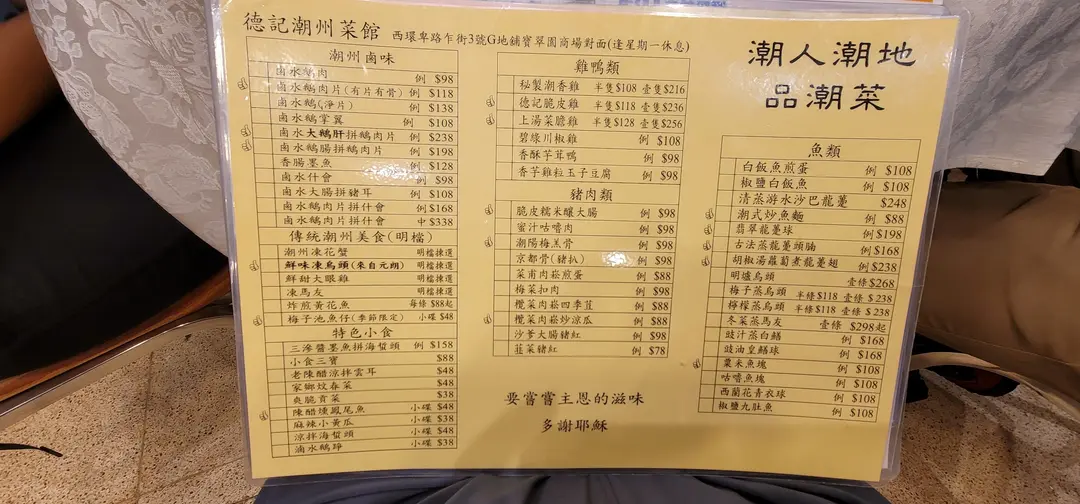 德記潮州菜館 西環卑路乍街3號G地舖寶翠園商場對面(逢星期一休息)
潮州鹵味
鹵水鵝肉 例 $98
鹵水鵝肉片(有片有骨) 例 $118
鹵水鵝(淨片) 例 $138
鹵水鵝掌翼 例 $108
鹵水大鵝肝拼鵝肉片 例 $238
鹵水鵝腸拼鵝肉片 例 $198
香腸墨魚 例 $128
鹵水什會 例 $98
鹵水大腸拼豬耳 例 $108
鹵水鵝肉片拼什會 例 $168
鹵水鵝肉片拼什會 中 $338
傳統潮州美食(明檔)
潮州凍花蟹 明檔揀選
鮮味凍烏頭(來自元朗) 明檔揀選
鮮甜大眼雞 明檔揀選
凍馬友 明檔揀選
炸煎黃花魚 每條 $88起
梅子池魚仔(季節限定) 小碟 $48
特色小食
三滲醬墨魚拼海蜇頭 例 $158
小食三寶 $88
老陳醋涼拌雲耳 $48
家鄉炆春菜 $48
爽脆貢菜 $38
陳醋燻鳳尾魚 小碟 $48
麻辣小黃瓜 小碟 $38
涼拌海蜇頭 小碟 $48
滷水鵝腎 小碟 $38
雞鴨類
秘製潮香雞 半隻$108 壹隻$216
德記脆皮雞 半隻$118 壹隻$236
上湯菜膽雞 半隻$128 壹隻$256
碧綠川椒雞 例 $108
香酥芋茸鴨 例 $98
香芋雞粒玉子豆腐 例 $98
豬肉類
脆皮糯米釀大腸 例 $98
蜜汁咕嚕肉 例 $98
潮陽梅羔骨 例 $98
京都骨(豬扒) 例 $98
菜甫肉崧煎蛋 例 $88
梅菜扣肉 例 $98
欖菜肉崧四季荳 例 $88
欖菜肉崧炒涼瓜 例 $88
沙爹大腸豬紅 例 $98
韮菜豬紅 例 $78
要嘗嘗主恩的滋味
多謝耶穌
潮人潮地
品潮菜
魚類
白飯魚煎蛋 例 $108
椒鹽白飯魚 例 $108
清蒸游水沙巴龍躉 $248
潮式炒魚麵 例 $88
翡翠龍躉球 例 $198
古法蒸龍躉頭腩 例 $168
胡椒湯蘿蔔煮龍躉翅 例 $238
明爐烏頭 壹條 $268
梅子蒸烏頭 半條$118 壹條 $238
檸檬蒸烏頭 半條$118 壹條 $238
冬菜蒸馬友 壹條 $298起
豉汁蒸白鱔 例 $168
豉油皇鱔球 例 $168
粟米魚塊 例 $108
咕嚕魚塊 例 $108
西蘭花青衣球 例 $108
椒鹽九肚魚 例 $108